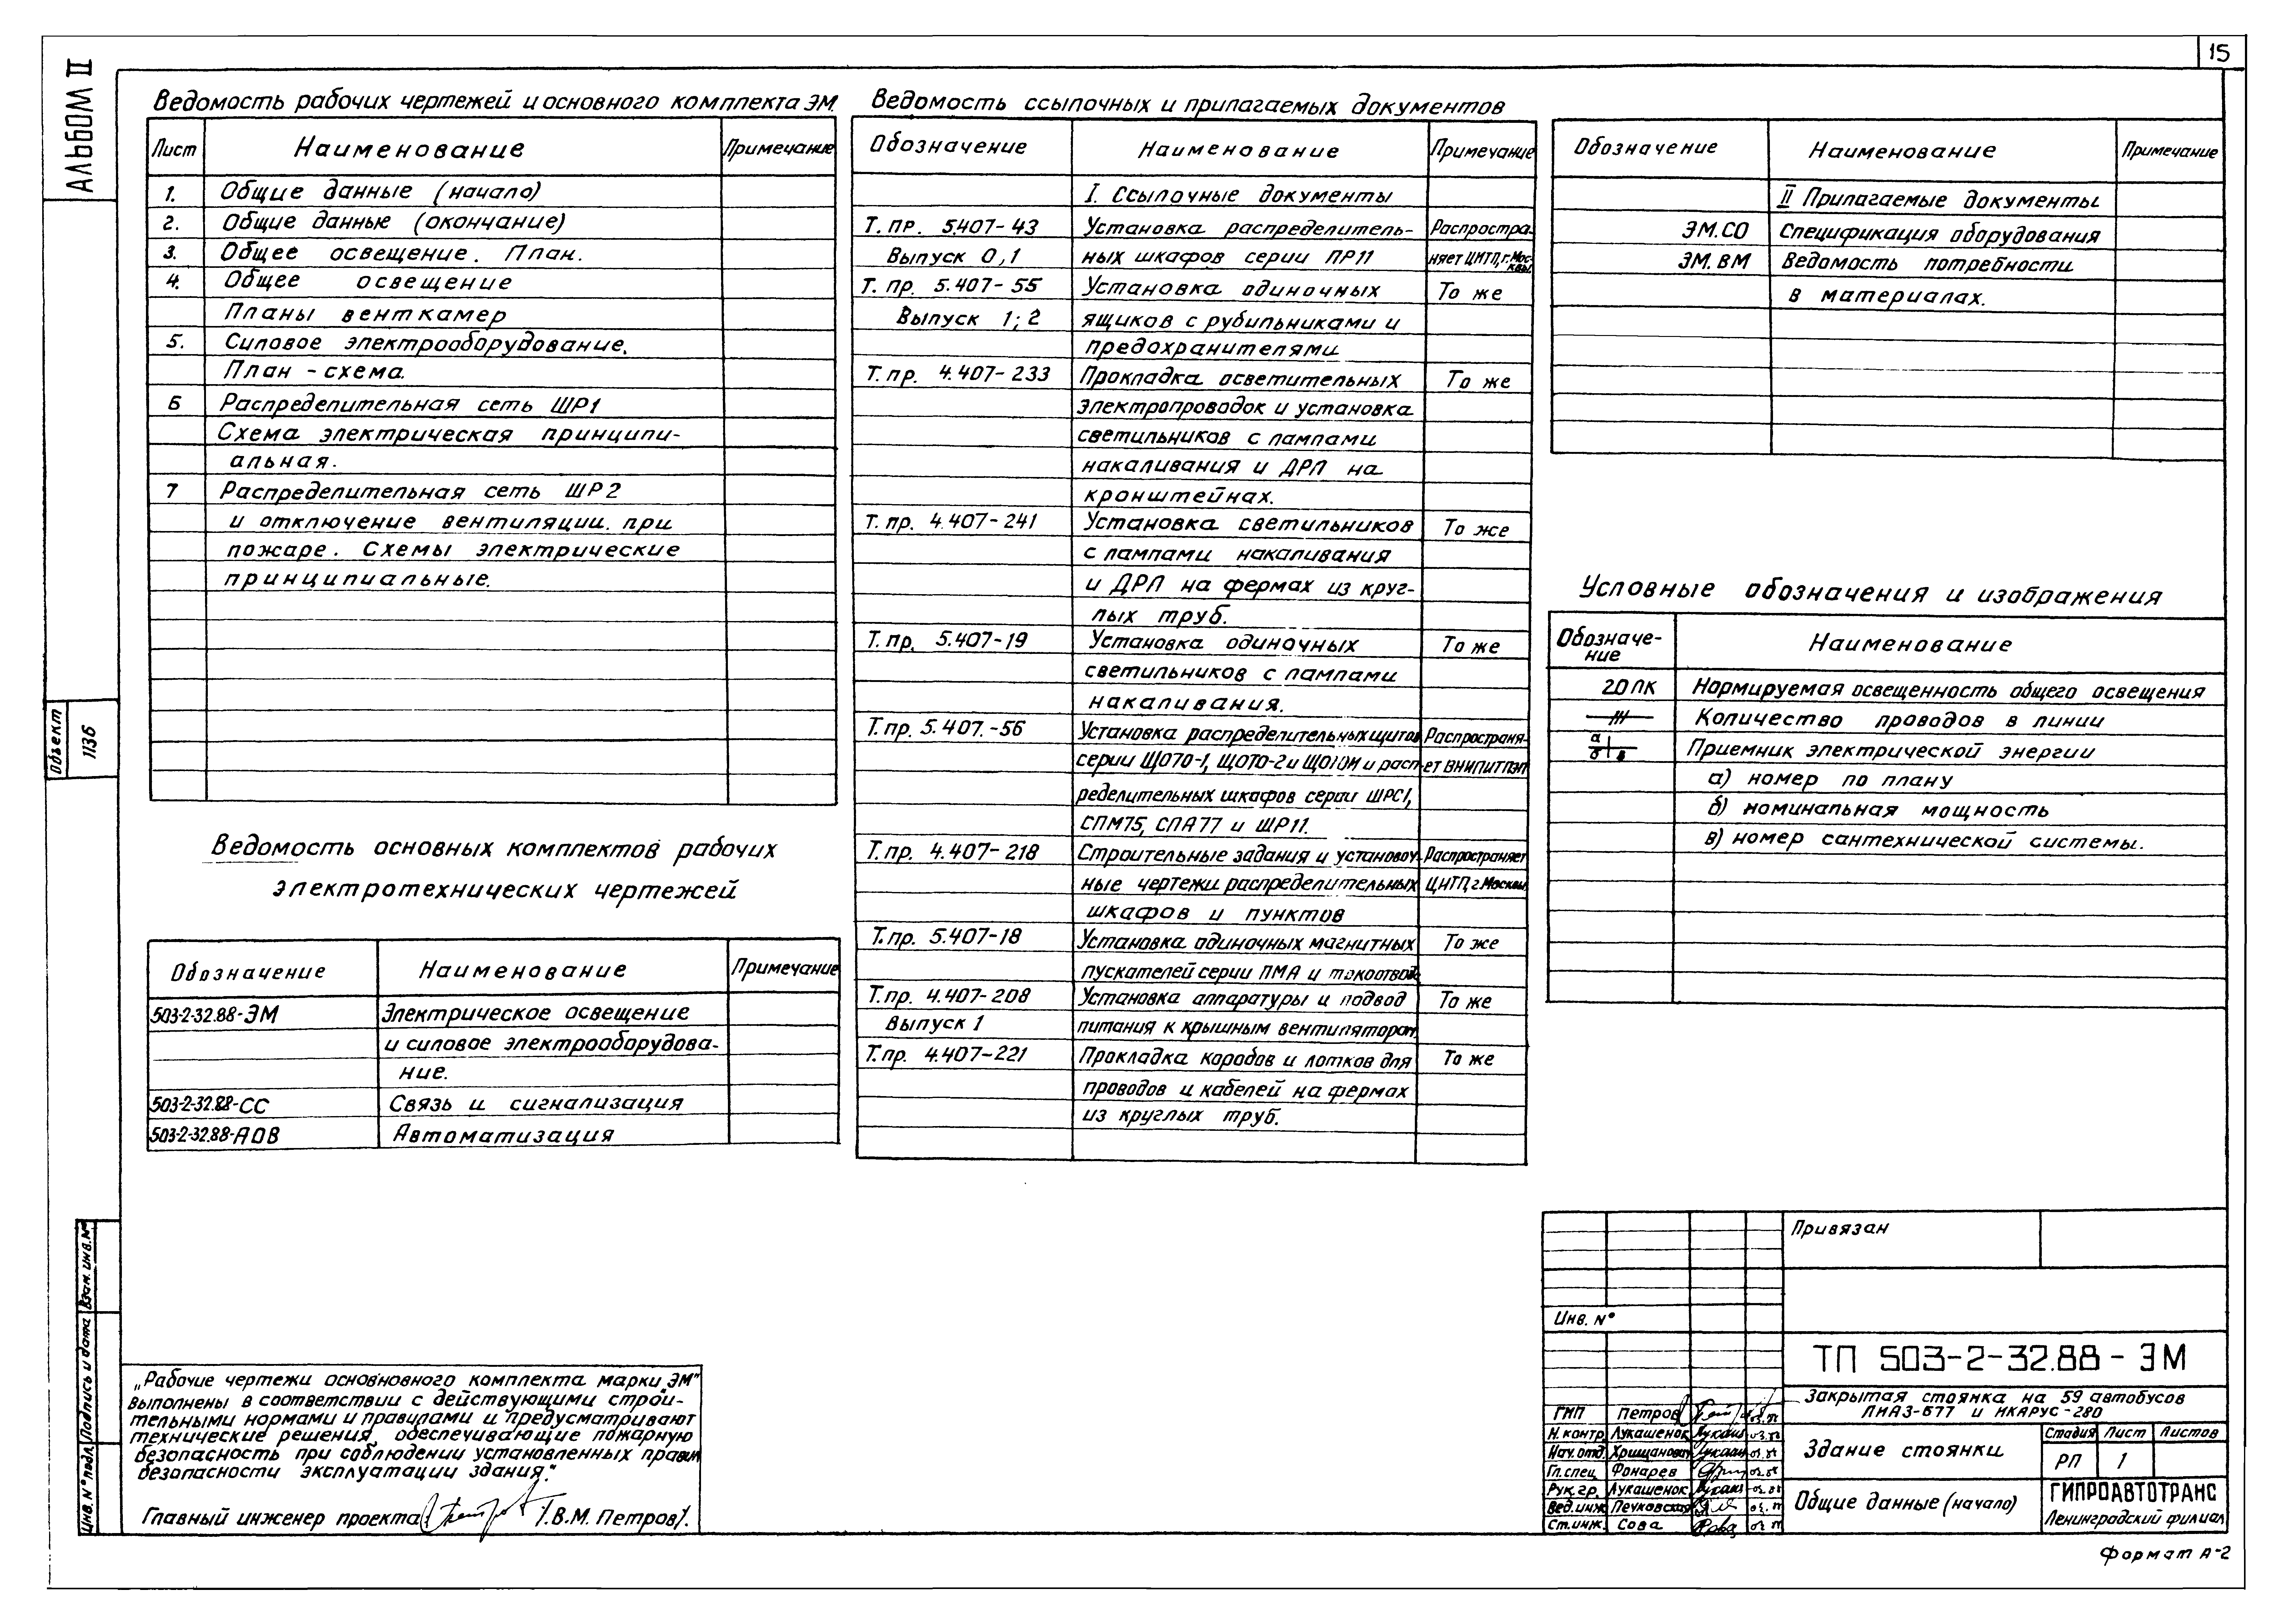 15
АЛЬБОМ II
Объект
1136
Взам. инв. №
Подпись и дата
Инв. № подл.
Ведомость рабочих чертежей и основного комплекта ЭМ.
Лист Наименование Примечание
1. Общие данные (начало)
2. Общие данные (окончание)
3. Общее освещение. План.
4. Общее освещение
Планы венткамер
5. Силовое электрооборудование.
План - схема.
6 Распределительная сеть ШР1
Схема электрическая принципи-
альная.
7 Распределительная сеть ШР2
и отключение вентиляции. при
пожаре. Схемы электрические
принципиальные.
Ведомость основных комплектов рабочих
электротехнических чертежей
Обозначение Наименование Примечание
503-2-32.88-ЭМ Электрическое освещение
и силовое электрооборудова-
ние.
503-2-32.88-СС Связь и сигнализация
503-2-32.88-АОВ Автоматизация
Ведомость ссылочных и прилагаемых документов
Обозначение Наименование Примечание
I. Ссылочные документы
Т. пр. 5.407-43 Установка распределитель- Распростра-
Выпуск 0,1 ных шкафов серии ПР11 няет ЦИТП, г. Мос-
квы
Т. пр. 5.407-55 Установка одиночных То же
Выпуск 1; 2 ящиков с рубильниками и
предохранителями
Т. пр. 4.407-233 Прокладка осветительных То же
электропроводок и установка
светильников с лампами
накаливания и ДРЛ на
кронштейнах.
Т. пр. 4.407-241 Установка светильников То же
с лампами накаливания
и ДРЛ на фермах из круг-
лых труб.
Т. пр. 5.407-19 Установка одиночных То же
светильников с лампами
накаливания.
Т. пр. 5.407.-56 Установка распределительных щитов Распространя-
серии ЩО70-1, ЩО70-2 и ЩО10М и расп- ет ВНИПИТПЭП
ределительных шкафов серии ШРС1,
СПМ75, СПА77 и ШР11.
Т. пр. 4.407-218 Строительные задания и установоч- Распространяет
ные чертежи распределительных ЦИТП, г. Москвы
шкафов и пунктов
Т. пр. 5.407-18 Установка одиночных магнитных То же
пускателей серии ПМА и токоотвод.
Т. пр. 4.407-208 Установка аппаратуры и подвод То же
Выпуск 1 питания к крышным вентиляторам.
Т. пр. 4.407-221 Прокладка коробов и лотков для То же
проводов и кабелей на фермах
из круглых труб.
Обозначение Наименование Примечание
II Прилагаемые документы
ЭМ.СО Спецификация оборудования
ЭМ.ВМ Ведомость потребности
в материалах.
Условные обозначения и изображения
Обозначе-
ние Наименование
20 ЛК Нормируемая освещенность общего освещения
Количество проводов в линии
а
б в Приемник электрической энергии
а) номер по плану
б) номинальная мощность
в) номер сантехнической системы.
„Рабочие чертежи основновного комплекта марки „ЭМ"
выполнены в соответствии с действующими строи-
тельными нормами и правилами и предусматривают
технические решения, обеспечивающие пожарную
безопасность при соблюдении установленных правил
безопасности эксплуатации здания."
Главный инженер проекта /.В.М. Петров/.
Привязан
Инв. №
ТП 503-2-32.88 - ЭМ
Закрытая стоянка на 59 автобусов
ЛИАЗ-677 и ИКАРУС-280
ГИП Петров
Н. контр. Лукашенок
Нач. отд. Хрищанович
Гл. спец. Фонарев
Рук. гр. Лукашенок
Вед. инж. Печковская
Ст. инж. Сова
Здание стоянки
Стадия Лист Листов
РП 1
Общие данные (начало)
ГИПРОАВТОТРАНС
Ленинградский филиал
Формат А-2